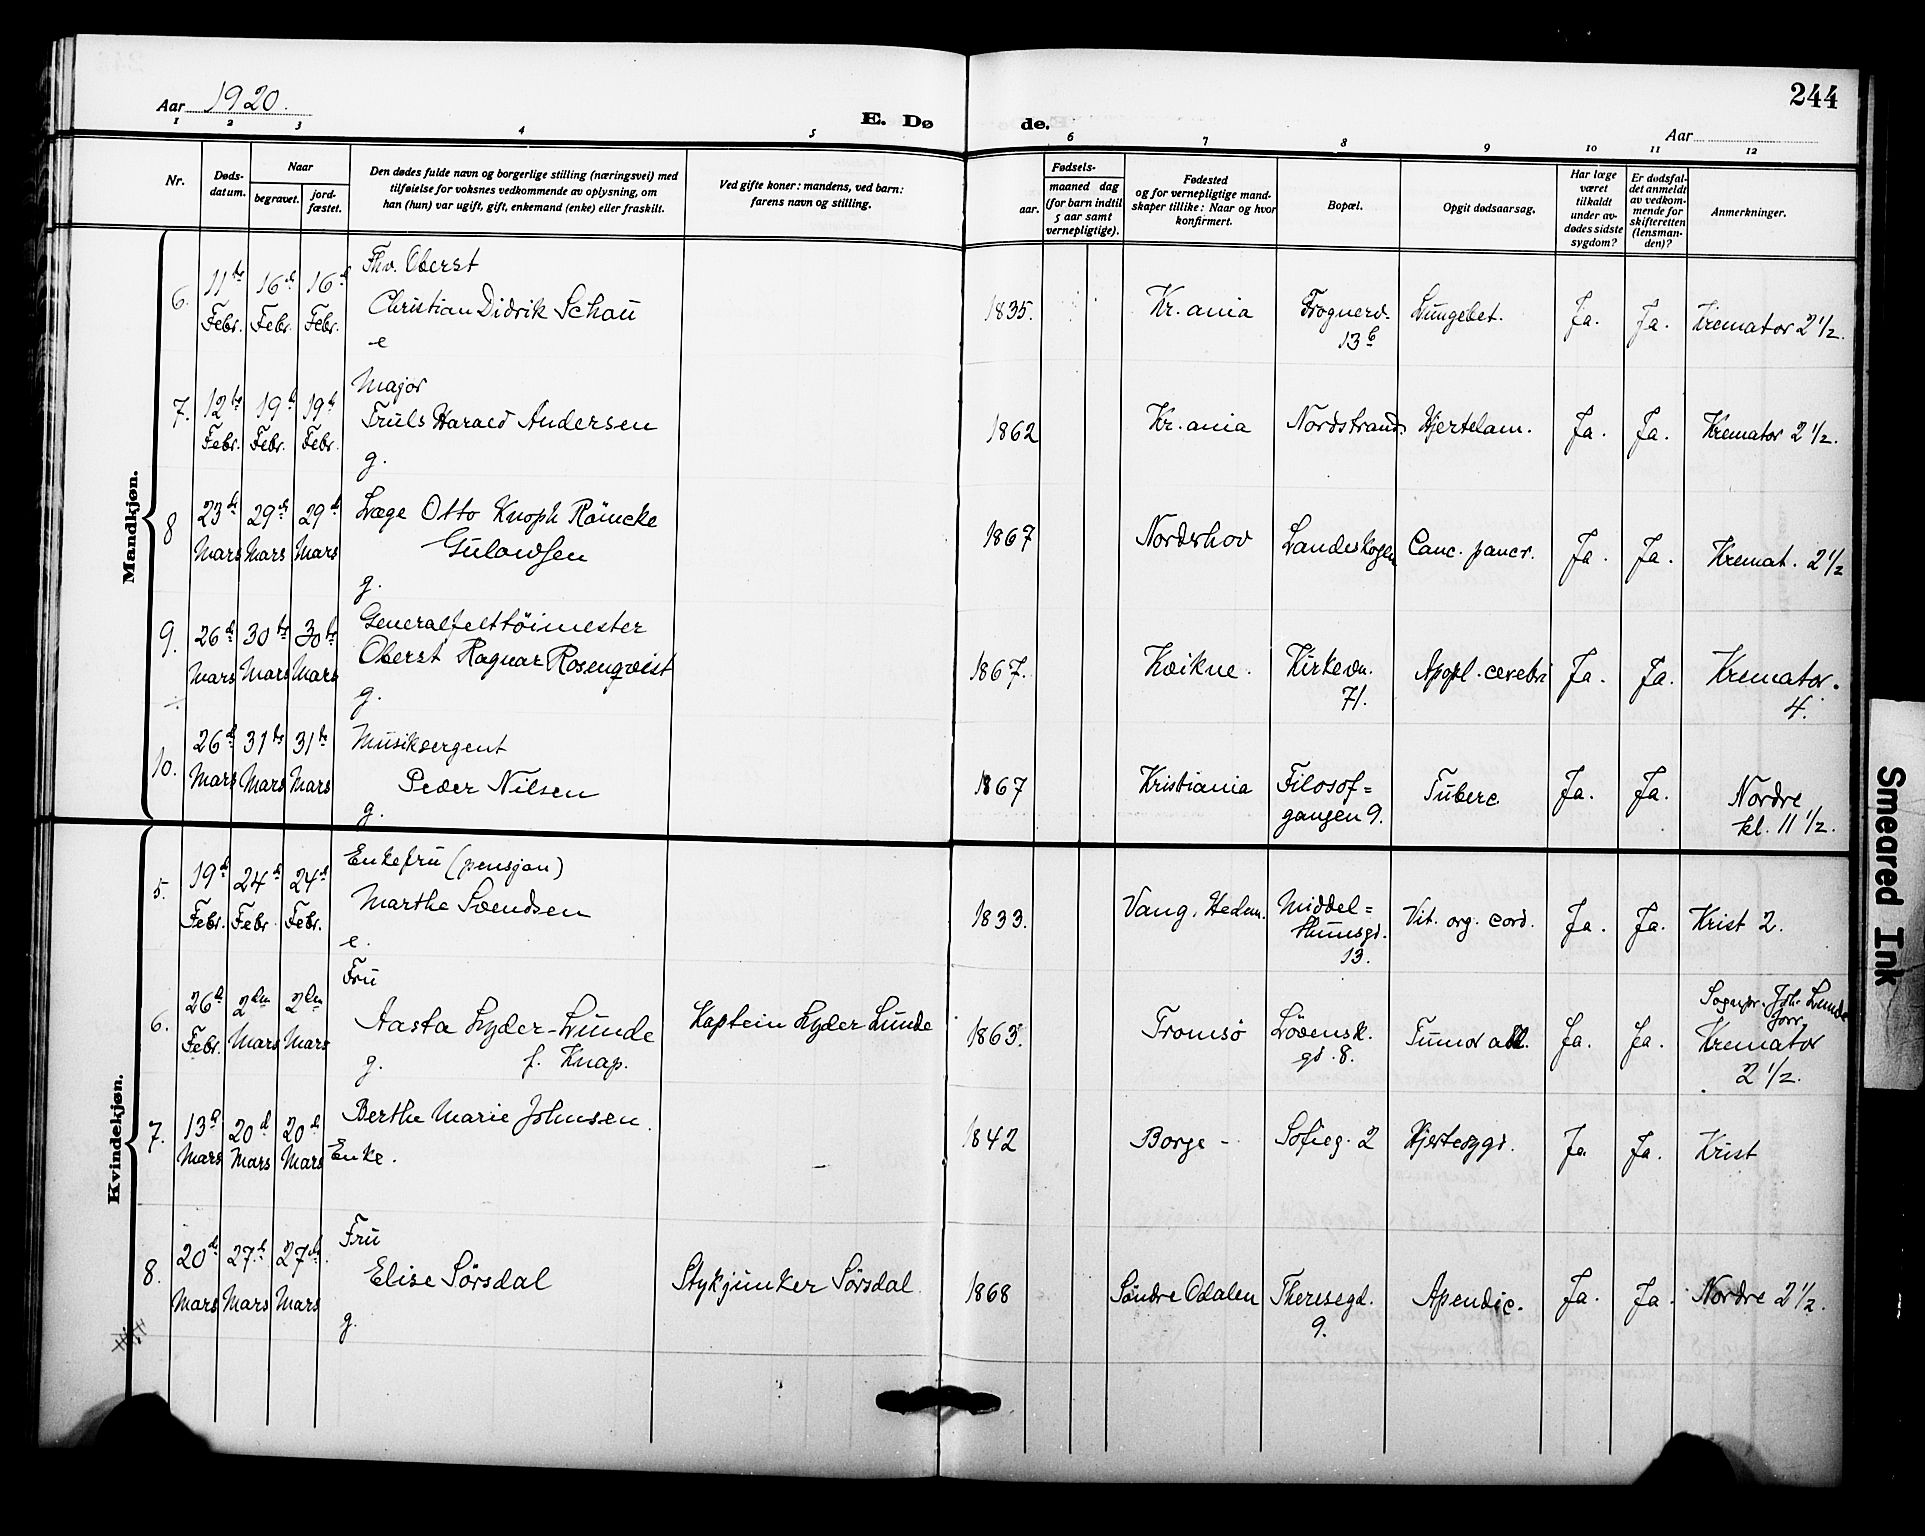 244
Aar 1920.
E. Dø de.
Aar
1 2 3 4 5 6 7 8 9 10 11 12
Nr.
Døds-
datum.
Naar
begravet.
jord-
fæstet.
Den dødes fulde navn og borgerlige stilling (næringsvei) med
tilføielse for voksnes vedkommende av oplysning, om
han (hun) var ugift, gift, enkemand (enke) eller fraskilt.
Ved gifte koner: mandens, ved barn:
farens navn og stilling.
Fødsels-
aar.
maaned dag
(for barn indtil
5 aar samt
vernepligtige).
Fødested
og for vernepligtige mand-
skaper tillike: Naar og hvor
konfirmert.
Bopæl.
Opgit dødsaarsag.
Har læge
været
tilkaldt
under av-
dødes sidste
sygdom?
Er dødsfal-
det anmeldt
av vedkom-
mende for
skifteretten
(lensman-
den)?
Anmerkninger.
Mandkjøn.
6. 11te Febr. 16de Febr. 16de Febr.
Fhv. Oberst
Christian Didrik Schou
e
1835. Kr.ania Frognerv. 13b Lungebet. Ja. Ja. Kremator 2 1/2.
7. 12te Febr. 19de Febr. 19de Febr.
Major
Truls Harald Andersen
g.
1862 Kr.ania Nordstrand Hjertelam. Ja. Ja. Kremator 2 1/2.
8 23de Mars 29de Mars 29de Mars
Læge Otto Knoph Römcke
Gulowsen
g.
1867 Norderhov Landeskogen Canc. pancr. Ja. Ja. Kremat. 2 1/2
9. 26de Mars 30te Mars 30te Mars
Generalfelttöimester
Oberst Ragnar Rosenqvist
g.
1867. Kvikne. Kirkevn. 71. Apopl. cerebri Ja. Ja. Kremator. 4.
10. 26de Mars 31te Mars 31te Mars
Musiksergent
Peder Nilsen
g.
1867 Kristiania Filosof=
gangen 9. Tuberc Ja. Ja. Nordre
kl. 11 1/2.
Kvindekjøn.
5. 19de Febr. 24de Febr. 24de Febr.
Enkefru (pensjon)
Marthe Svendsen
e.
1833. Vang, Hedm. Middel=
thunsgd.
13. Vit. org. cord. Ja. Ja. Krist 2.
6. 26de Febr. 2den Mars 2den Mars
Fru
Aasta Lyder-Lunde
g. f. Knap.
Kaptein Lyder Lunde
1863. Tromsö Lövensk.
gd. 8. Tumor Ja. Ja. Sognpr. Joh. Lunde
forr.
Kremator
2 1/2.
7. 13de Mars 20de Mars 20de Mars
Berthe Marie Johnsen.
Enke.
1842 Borge - Sofieg. 2 Hjertesygd. Ja Ja. Krist
8. 20de Mars 27de Mars 27de Mars
Fru
Elise Sörsdal
g.
Stykjunker Sörsdal.
1868 Söndre Odalen Theresegd.
9. Apendic. Ja. Ja. Nordre 2 1/2.
Smeared Ink